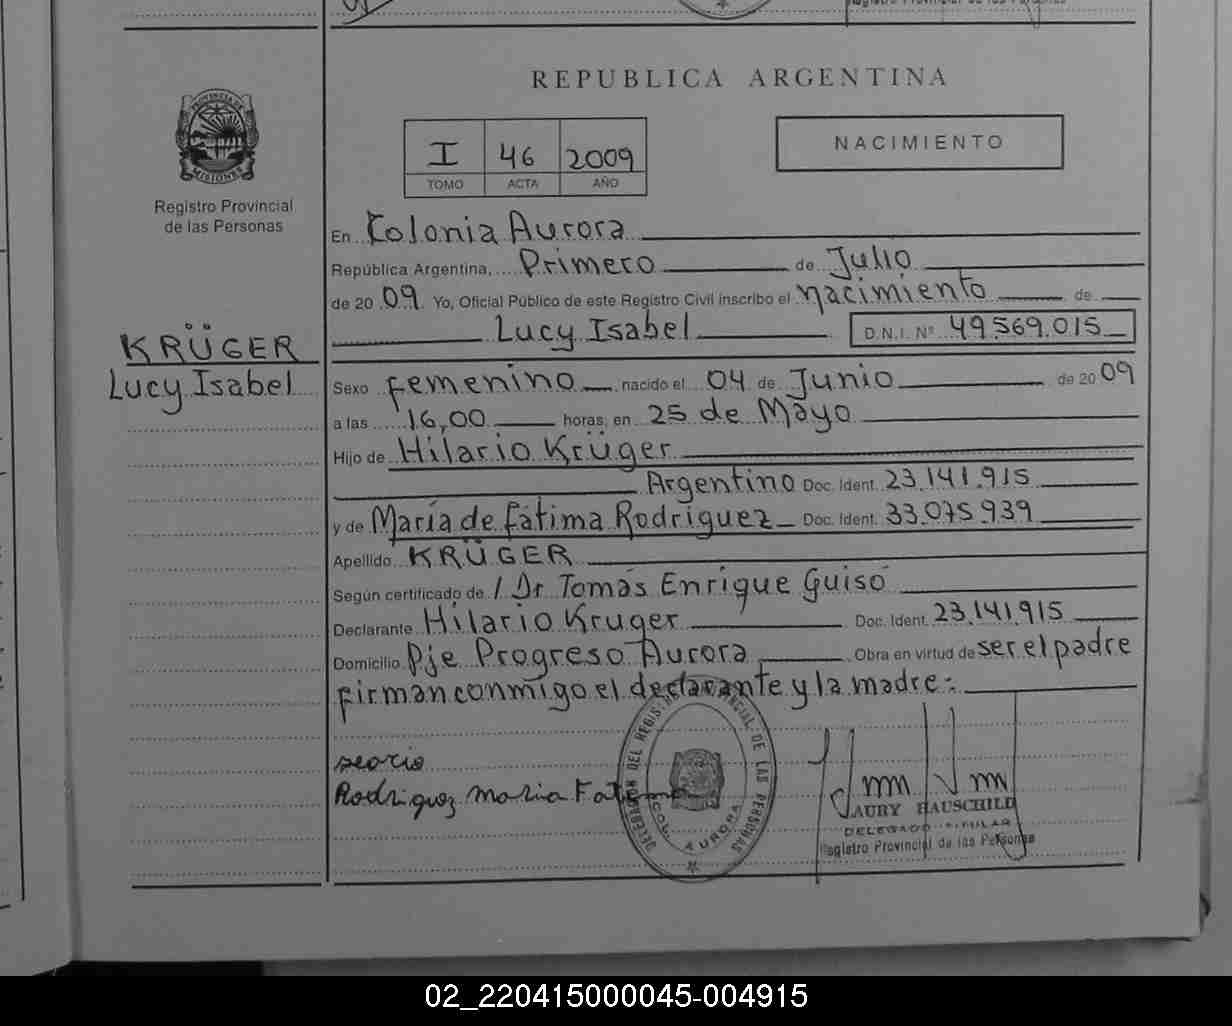 REPUBLICA ARGENTINA
PROVINCIA DE
MISIONES
Registro Provincial
de las Personas
I 46 2009
TOMO ACTA AÑO
NACIMIENTO
En Colonia Aurora
República Argentina, Primero de Julio
de 20 09. Yo, Oficial Público de este Registro Civil inscribo el nacimiento de
Lucy Isabel D.N.I. Nº 49.569.015
KRÜGER
Lucy Isabel
Sexo femenino nacido el 04 de Junio de 20 09
a las 16,00 horas, en 25 de Mayo
Hijo de Hilario Krüger
Argentino Doc. Ident. 23.141.915
y de María de Fátima Rodriguez Doc. Ident. 33.075.939
Apellido KRÜGER
Según certificado de / Dr Tomás Enrique Guisó
Declarante Hilario Kruger Doc. Ident. 23.141.915
Domicilio Pje Progreso Aurora Obra en virtud de ser el padre
firman conmigo el declarante y la madre:
Rodriguez Maria Fatima
DE LAS PERSONAS
COL. AURORA
AURY HAUSCHILD
DELEGADO TITULAR
Registro Provincial de las Personas
02_220415000045-004915